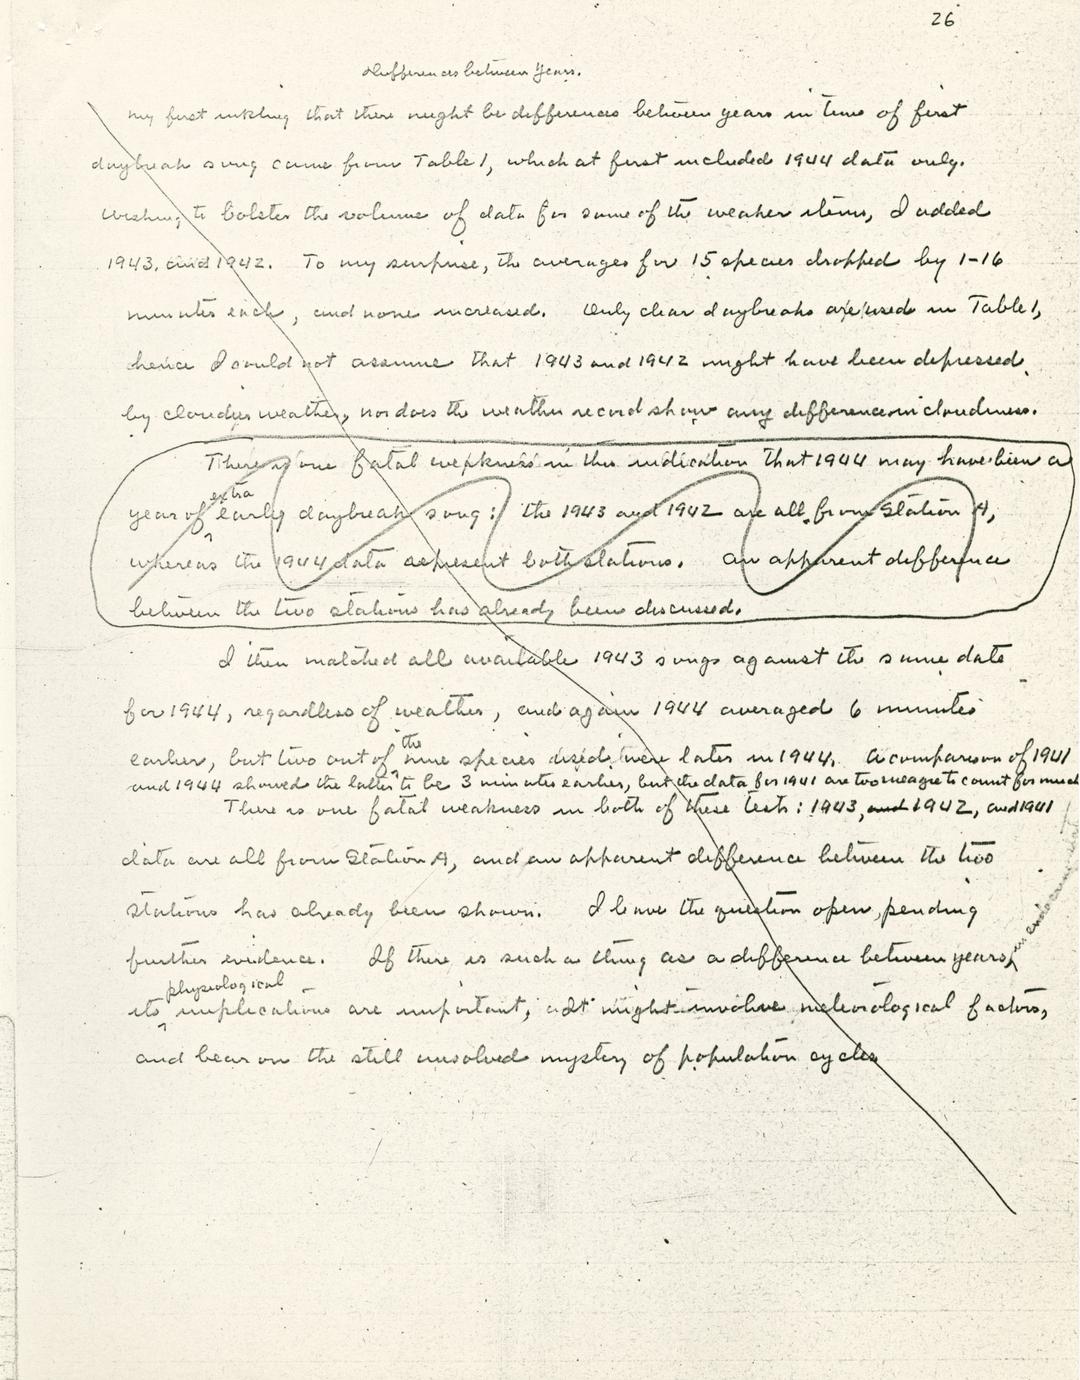 26
Differences between Years.
My first inkling that there might be differences between years in time of first
daybreak song came from Table 1, which at first included 1944 data only.
Wishing to bolster the volume of data for some of the weaker items, I added
1943, and 1942. To my surprise, the averages for 15 species dropped by 1-16
minutes each, and none increased. Only clear daybreaks are used in Table 1,
hence I could not assume that 1943 and 1942 might have been depressed
by cloudier weather, nor does the weather record show any difference in cloudiness.
There is one fatal weakness in this indication that 1944 may have been a
extra
year of early daybreak song: the 1943 and 1942 are all from Station A,
whereas the 1944 data represent both stations. An apparent difference
between the two stations has already been discussed.
I then matched all available 1943 songs against the same date
for 1944, regardless of weather, and again 1944 averaged 6 minutes
the
earlier, but two out of nine species used were later in 1944. A comparison of 1941
and 1944 showed the latter to be 3 minutes earlier, but the data for 1941 are too meagre to count for much
There is one fatal weakness in both of these tests: 1943, and 1942, and 1941
data are all from Station A, and an apparent difference between the two
stations has already been shown. I leave the question open, pending
further evidence. If there is such a thing as a difference between years,
physiological
its implications are important, it might involve meteorological factors,
and bear on the still unsolved mystery of population cycles